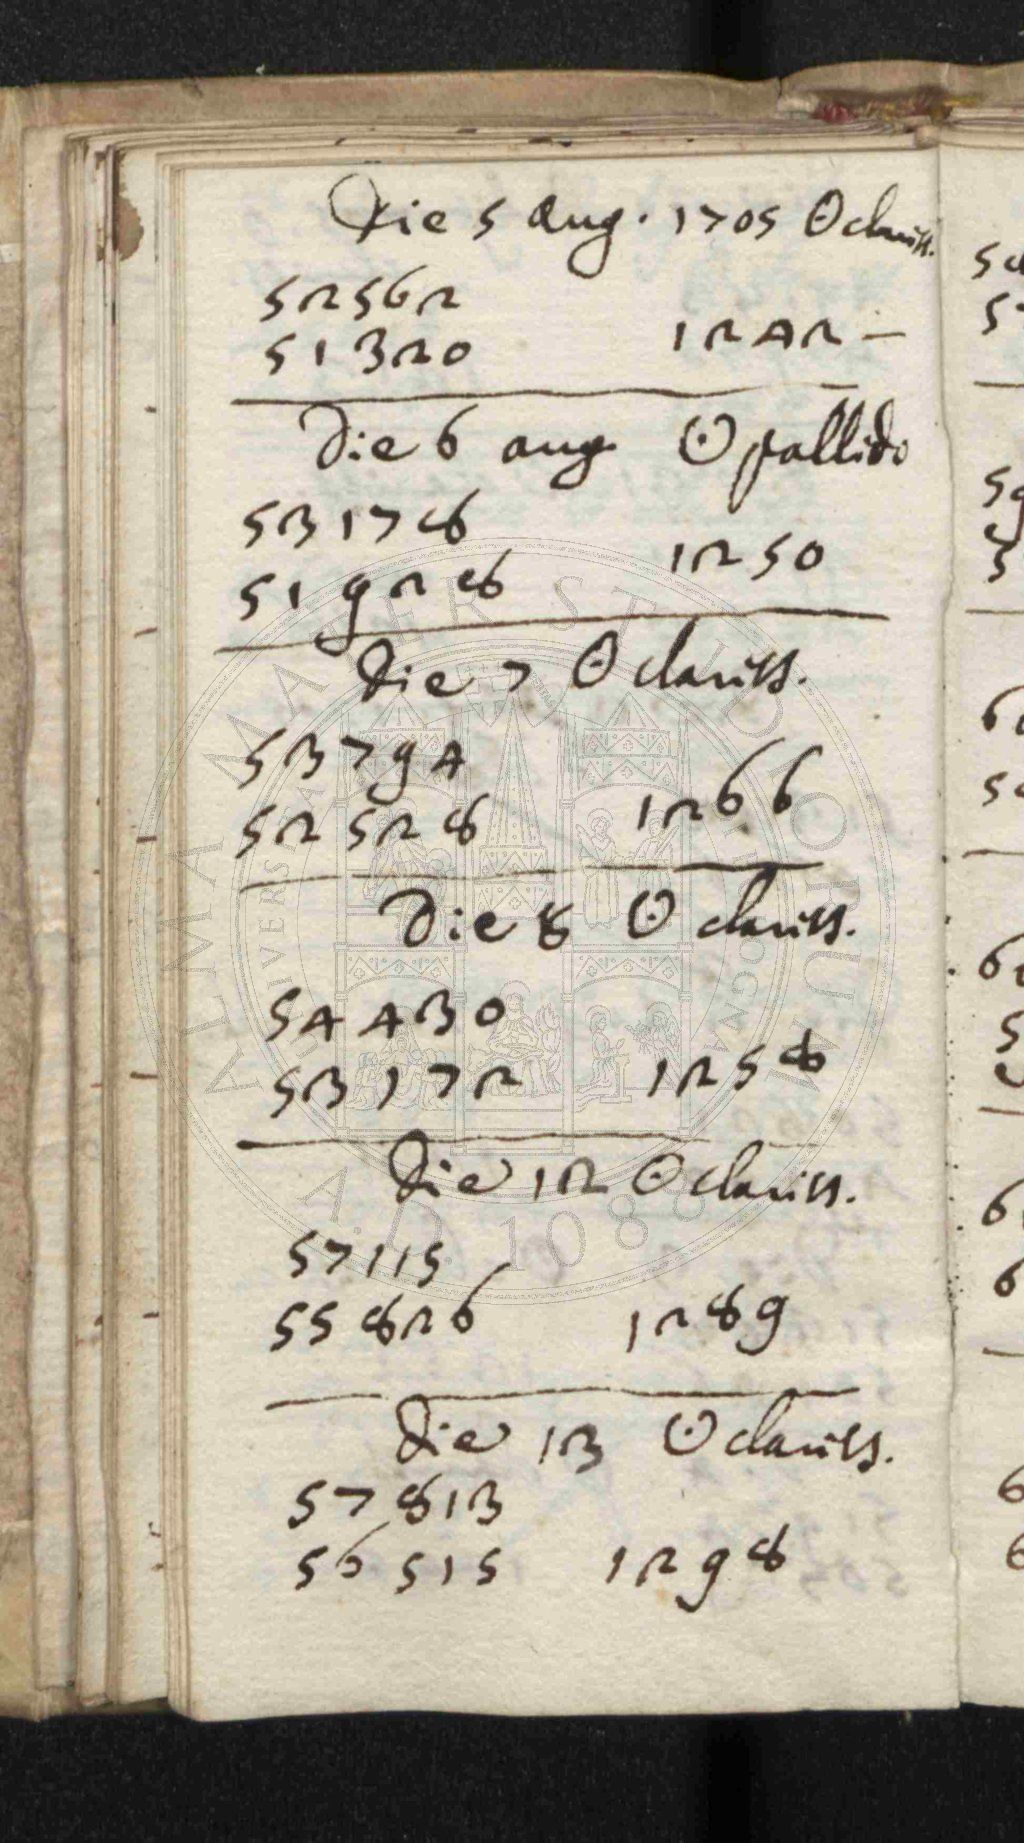 Die 5 Aug. 1705 ☉ clariss.
52562
51320 1242 –
Die 6 aug ☉ pallido
53178
51928 1250
Die 7 ☉ clariss.
53794
52528 1266
Die 8 ☉ clariss.
54430
53172 1258
Die 12 ☉ clariss.
57115
55826 1289
Die 13 ☉ clariss.
57813
56515 1298
ALMA MATER STUDIORUM
A.D. 1088